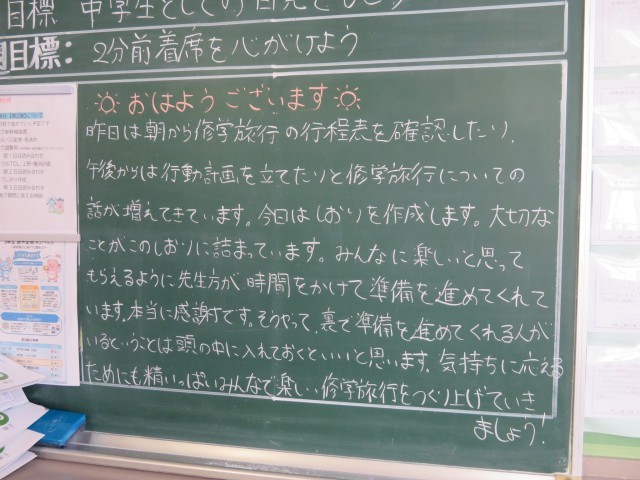 目標 中学生としての自覚をもとう
週目標: 2分前着席を心がけよう
おはようございます
昨日は朝から修学旅行の行程表を確認したり、
午後からは行動計画を立てたりと修学旅行についての
話が増えてきています。今日はしおりを作成します。大切な
ことがこのしおりに詰まっています。みんなに楽しいと思って
もらえるように先生方が時間をかけて準備を進めてくれて
います。本当に感謝です。そうやって、裏で準備を進めてくれる人が
いるということは頭の中に入れておくといいと思います。気持ちに応える
ためにも精いっぱいみんなで楽しい修学旅行をつくり上げていき
ましょう!